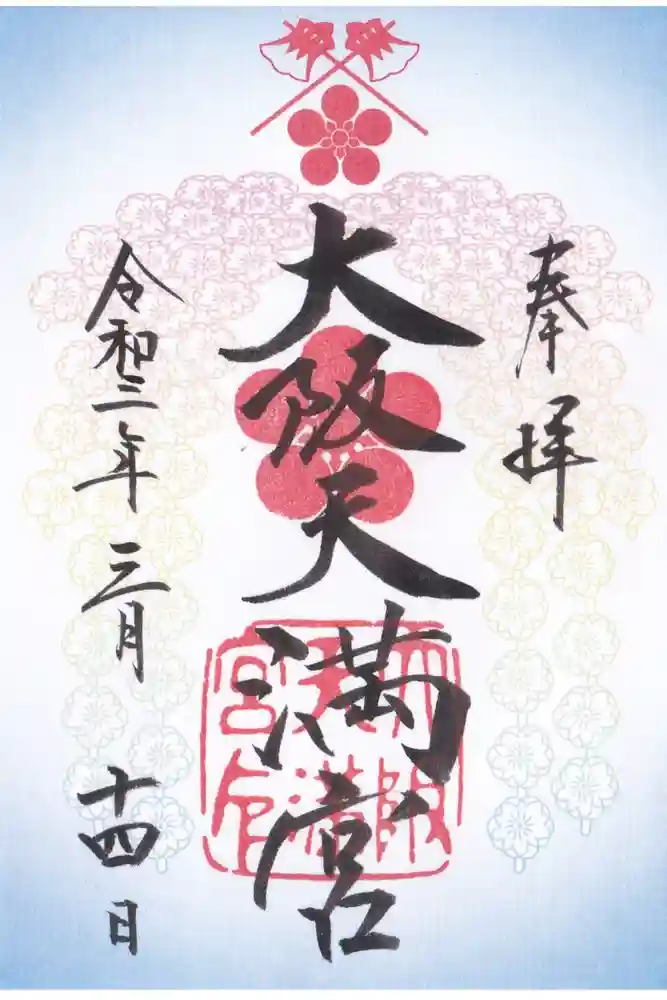 奉拝
大阪天満宮
大阪天満宮印
令和三年三月十四日